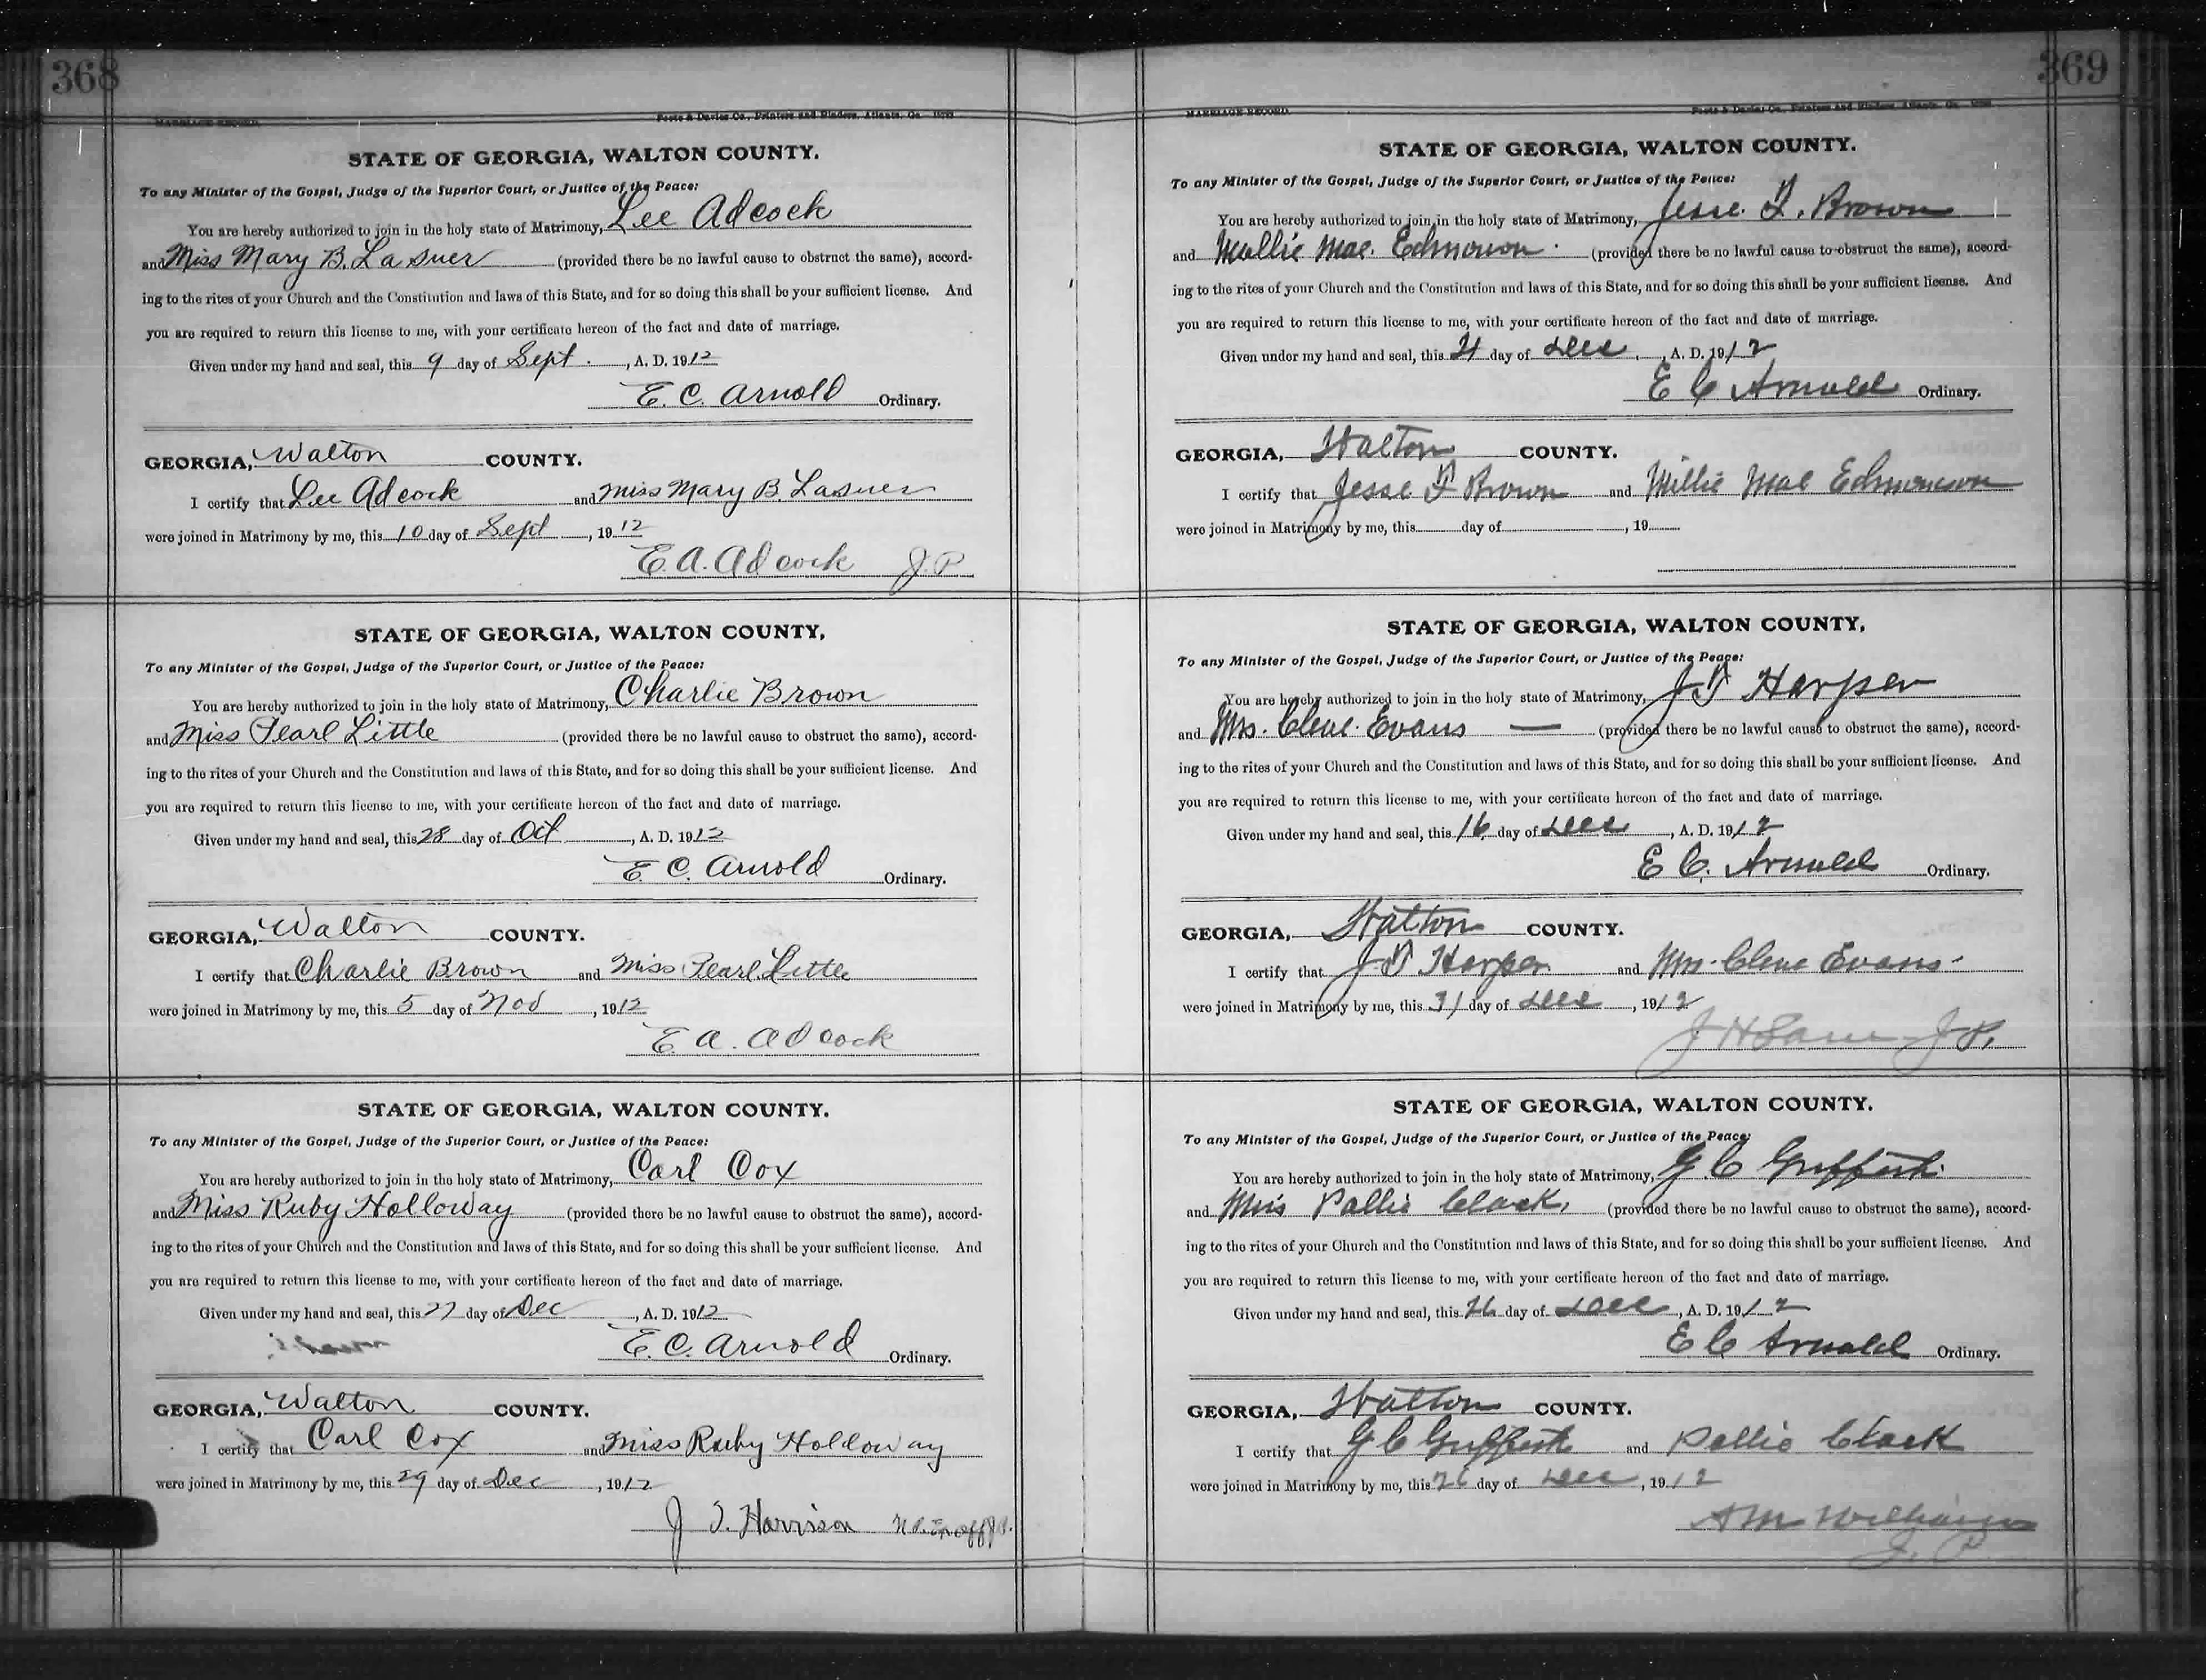 368
MARRIAGE RECORD. Foote & Davies Co., Printers and Binders, Atlanta, Ga.
STATE OF GEORGIA, WALTON COUNTY.
To any Minister of the Gospel, Judge of the Superior Court, or Justice of the Peace:
You are hereby authorized to join in the holy state of Matrimony, Lee Adcock
and Miss Mary B. Lasuer (provided there be no lawful cause to obstruct the same), accord-
ing to the rites of your Church and the Constitution and laws of this State, and for so doing this shall be your sufficient license. And
you are required to return this license to me, with your certificate hereon of the fact and date of marriage.
Given under my hand and seal, this 9 day of Sept. , A. D. 1912
E. C. Arnold Ordinary.
GEORGIA, Walton COUNTY.
I certify that Lee Adcock and Miss Mary B. Lasuer
were joined in Matrimony by me, this 10 day of Sept , 1912
E. A. Adcock J. P.
STATE OF GEORGIA, WALTON COUNTY,
To any Minister of the Gospel, Judge of the Superior Court, or Justice of the Peace:
You are hereby authorized to join in the holy state of Matrimony, Charlie Brown
and Miss Pearl Little (provided there be no lawful cause to obstruct the same), accord-
ing to the rites of your Church and the Constitution and laws of this State, and for so doing this shall be your sufficient license. And
you are required to return this license to me, with your certificate hereon of the fact and date of marriage.
Given under my hand and seal, this 28 day of Oct , A. D. 1912
E. C. Arnold Ordinary.
GEORGIA, Walton COUNTY.
I certify that Charlie Brown and Miss Pearl Little
were joined in Matrimony by me, this 5 day of Nov , 1912
E. A. Adcock
STATE OF GEORGIA, WALTON COUNTY.
To any Minister of the Gospel, Judge of the Superior Court, or Justice of the Peace:
You are hereby authorized to join in the holy state of Matrimony, Carl Cox
and Miss Ruby Holloway (provided there be no lawful cause to obstruct the same), accord-
ing to the rites of your Church and the Constitution and laws of this State, and for so doing this shall be your sufficient license. And
you are required to return this license to me, with your certificate hereon of the fact and date of marriage.
Given under my hand and seal, this 27 day of Dec , A. D. 1912
E. C. Arnold Ordinary.
GEORGIA, Walton COUNTY.
I certify that Carl Cox and Miss Ruby Holloway
were joined in Matrimony by me, this 29 day of Dec , 1912
J. T. Harrison
369
MARRIAGE RECORD. Foote & Davies Co., Printers and Binders, Atlanta, Ga.
STATE OF GEORGIA, WALTON COUNTY.
To any Minister of the Gospel, Judge of the Superior Court, or Justice of the Peace:
You are hereby authorized to join in the holy state of Matrimony, Jesse. T. Brown
and Mollie Mae. Edmonson (provided there be no lawful cause to obstruct the same), accord-
ing to the rites of your Church and the Constitution and laws of this State, and for so doing this shall be your sufficient license. And
you are required to return this license to me, with your certificate hereon of the fact and date of marriage.
Given under my hand and seal, this 21 day of Dec , A. D. 1912
E C Arnold Ordinary.
GEORGIA, Walton COUNTY.
I certify that Jesse T Brown and Millie Mae Edmonson
were joined in Matrimony by me, this day of , 19
STATE OF GEORGIA, WALTON COUNTY,
To any Minister of the Gospel, Judge of the Superior Court, or Justice of the Peace:
You are hereby authorized to join in the holy state of Matrimony, J T Harper
and Mrs. Cleve Evans (provided there be no lawful cause to obstruct the same), accord-
ing to the rites of your Church and the Constitution and laws of this State, and for so doing this shall be your sufficient license. And
you are required to return this license to me, with your certificate hereon of the fact and date of marriage.
Given under my hand and seal, this 16 day of Dec , A. D. 1912
E C. Arnold Ordinary.
GEORGIA, Walton COUNTY.
I certify that J T Harper and Mrs. Cleve Evans
were joined in Matrimony by me, this 31 day of Dec , 1912
J H J. P.
STATE OF GEORGIA, WALTON COUNTY.
To any Minister of the Gospel, Judge of the Superior Court, or Justice of the Peace:
You are hereby authorized to join in the holy state of Matrimony, G. C Griffeth
and Miss Pallie Clack, (provided there be no lawful cause to obstruct the same), accord-
ing to the rites of your Church and the Constitution and laws of this State, and for so doing this shall be your sufficient license. And
you are required to return this license to me, with your certificate hereon of the fact and date of marriage.
Given under my hand and seal, this 26 day of Dec , A. D. 1912
E C Arnold Ordinary.
GEORGIA, Walton COUNTY.
I certify that G C Griffeth and Pallie Clack
were joined in Matrimony by me, this 26 day of Dec , 1912
A M Williams
J. P.